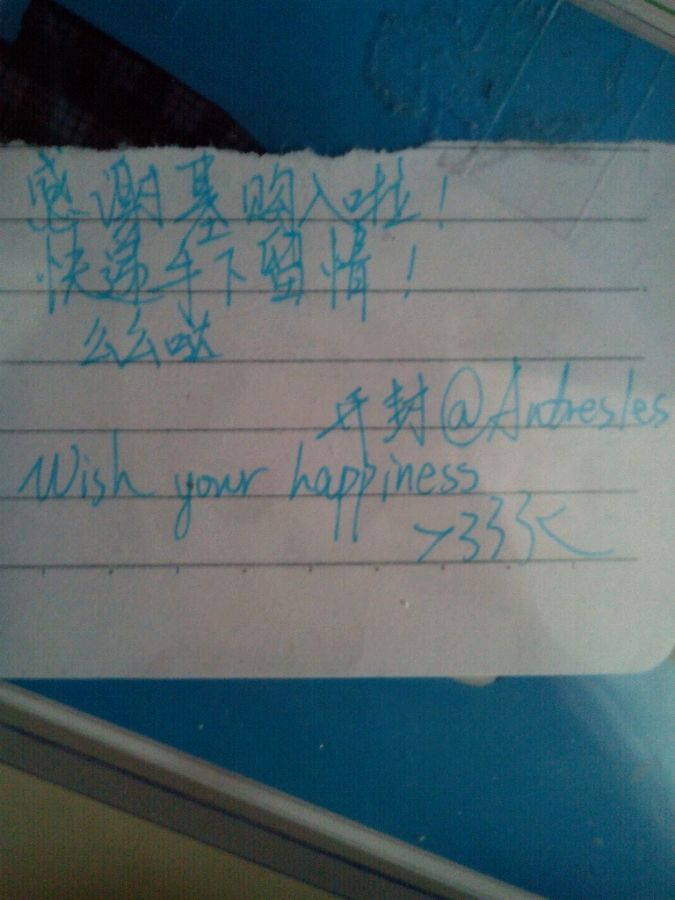 感谢基购入啦！
快递手下留情！
么么哒
开封@Antresles
Wish your happiness
>333<